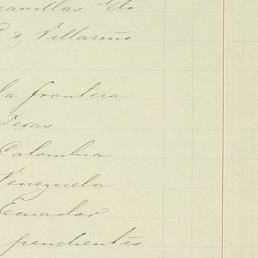 ravillas Gto
C. y Villarino
la frontera
Texas
Colombia
Venezuela
Ecuador
pendientes